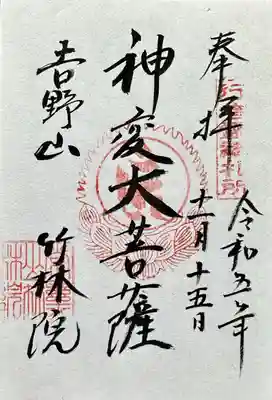 奉拝
令和五年
十二月十五日
神変大菩薩
吉野山
竹林院